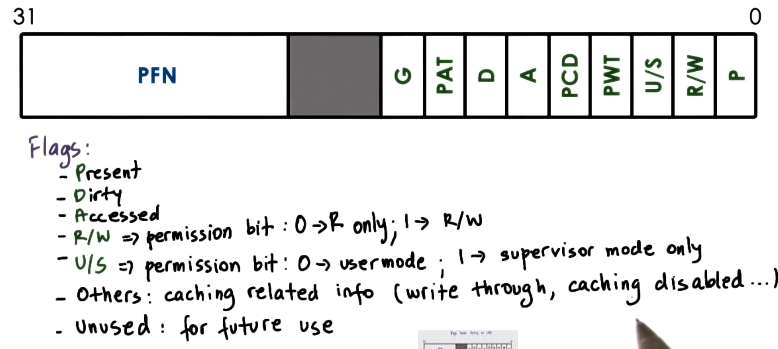 31 0
PFN G PAT D A PCD PWT U/S R/W P
Flags:
- Present
- Dirty
- Accessed
- R/W => permission bit : 0 → R only; 1 → R/W
- U/S => permission bit: 0 → usermode ; 1 → supervisor mode only
- Others: caching related info (write through, caching disabled ...)
- Unused : for future use